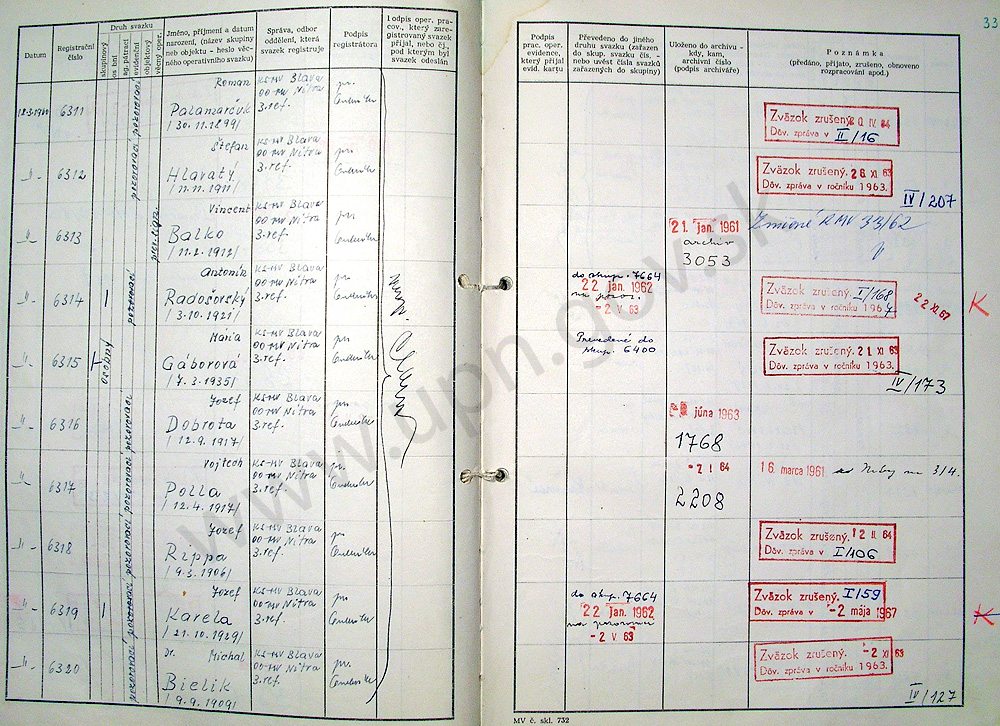 33
Druh svazku
Datum
Registrační
číslo
skupinový
osobní
ag. pátrací
evidenční
objektový
věcný oper.
Jméno, příjmení a datum
narození, (název skupiny
neb objektu - heslo věc-
ného operativního svazku)
Správa, odbor
oddělení, která
svazek registruje
Podpis
registrátora
Podpis oper. pra-
cov., který zare-
gistrovaný svazek
přijal, nebo čj.,
pod kterým byl
svazek odeslán
Podpis
prac. oper.
evidence,
který přijal
evid. kartu
Převedeno do jiného
druhu svazku (zařazen
do skup. svazku čís. -
nebo uvést čísla svazků
zařazených do skupiny)
Uloženo do archivu -
kdy, kam,
archivní číslo
(podpis archiváře)
Poznámka
(předáno, přijato, zrušeno, obnoveno
rozpracování apod.)
6311
pozorovací
Roman
Palamarčuk
/30.11.1899/
KS-MV Blava
OO-MV Nitra
3.ref.
Zväzok zrušený
Dôv. zpráva v I/16
-"- 6312
Štefan
Hlavatý
/11.11.1911/
KS-MV Blava
OO-MV Nitra
3.ref.
Zväzok zrušený. 26 XI 63
Dôv. zpráva v ročníku 1963.
IV/207
-"- 6313
Vincent
Balko
/11.2.1912/
KS-MV Blava
OO-MV Nitra
3.ref.
21. jan. 1961
archiv
3053
RMV 33/62
-"- 6314
pozorovací
Antonín
Radošovský
/3.10.1921/
KS-MV Blava
OO-MV Nitra
3.ref.
do skup. 7664
22 jan. 1962
na pozor.
- 2 V 63
Zväzok zrušený. I/168
Dôv. zpráva v ročníku 1967
22 XI 67
K
-"- 6315
osobný
Mária
Gáborová
/7.3.1935/
KS-MV Blava
OO-MV Nitra
3.ref.
Prevedené do
skup. 6400
Zväzok zrušený. 21 XI 63
Dôv. zpráva v ročníku 1963.
IV/173
-"- 6316
pozorovací
Jozef
Dobrota
/12.9.1917/
KS-MV Blava
OO-MV Nitra
3.ref.
júna 1963
1768
-"- 6317
pozorovací
Vojtech
Polla
/12.4.1917/
KS-MV Blava
OO-MV Nitra
3.ref.
- 2 I 64
2208
16 marca 1961
-"- 6318
pozorovací
Jozef
Rippa
/9.3.1906/
KS-MV Blava
OO-MV Nitra
3.ref.
Zväzok zrušený. 12 II 64
Dôv. zpráva v I/406
-"- 6319
pozorovací
Jozef
Karela
/21.10.1929/
KS-MV Blava
OO-MV Nitra
3.ref.
do skup. 7664
22 jan. 1962
na pozorovací
- 2 V 63
Zväzok zrušený. I/59
Dôv. zpráva v -2 mája 1967
K
-"- 6320
pozorovací
Dr. Michal
Bielik
/9.9.1909/
KS-MV Blava
OO-MV Nitra
3.ref.
Zväzok zrušený. -2 XI 63
Dôv. zpráva v ročníku 1963.
IV/127
MV č. skl. 732
www.upn.gov.sk